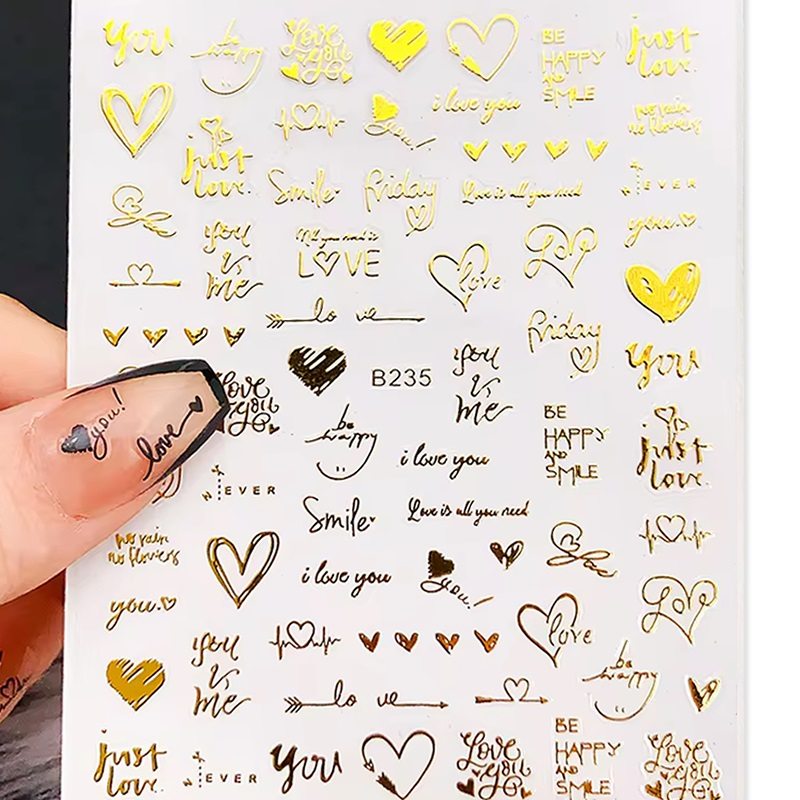 you
be happy
Love you
BE
HAPPY
AND
SMILE
just
love.
i love you
you!
no rain
no flowers
just
love.
Smile
friday
Love is all you need
EVER
you.
you
is
me
All you need is
LOVE
love
Love
lo ve
friday
you
B235
you
is
me
Love
you
be
happy
BE
HAPPY
AND
SMILE
just
love.
you!
love
i love you
EVER
Smile
Love is all you need
no rain
no flowers
i love you
you!
you.
love
Love
you
is
me
be
happy
lo ve
just
love.
EVER
you
Love
you
BE
HAPPY
AND
SMILE
Love
you